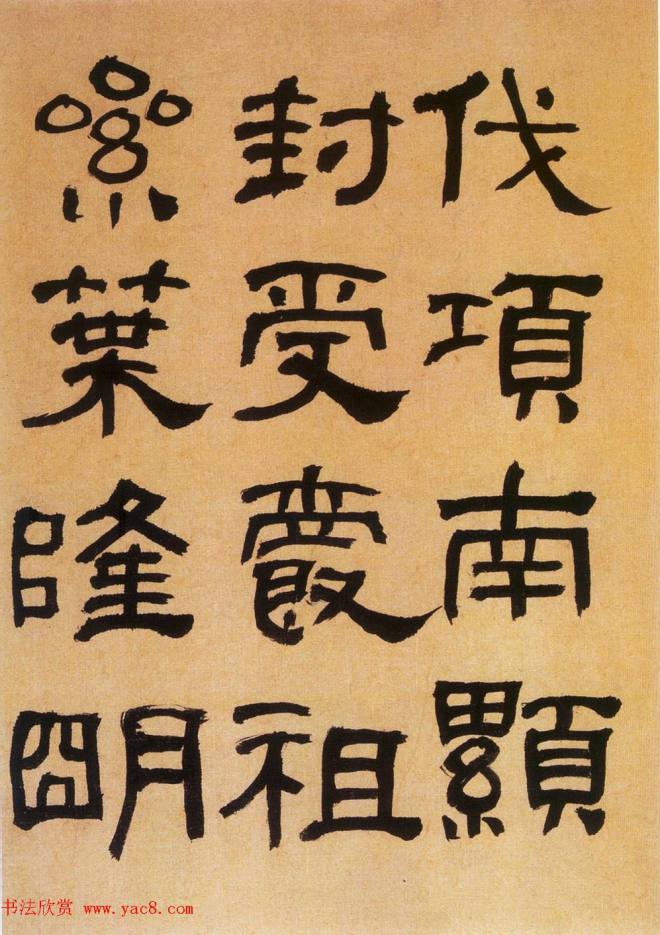 伐項南
封受祖
纍葉隆朙
书法欣赏 www.yac8.com